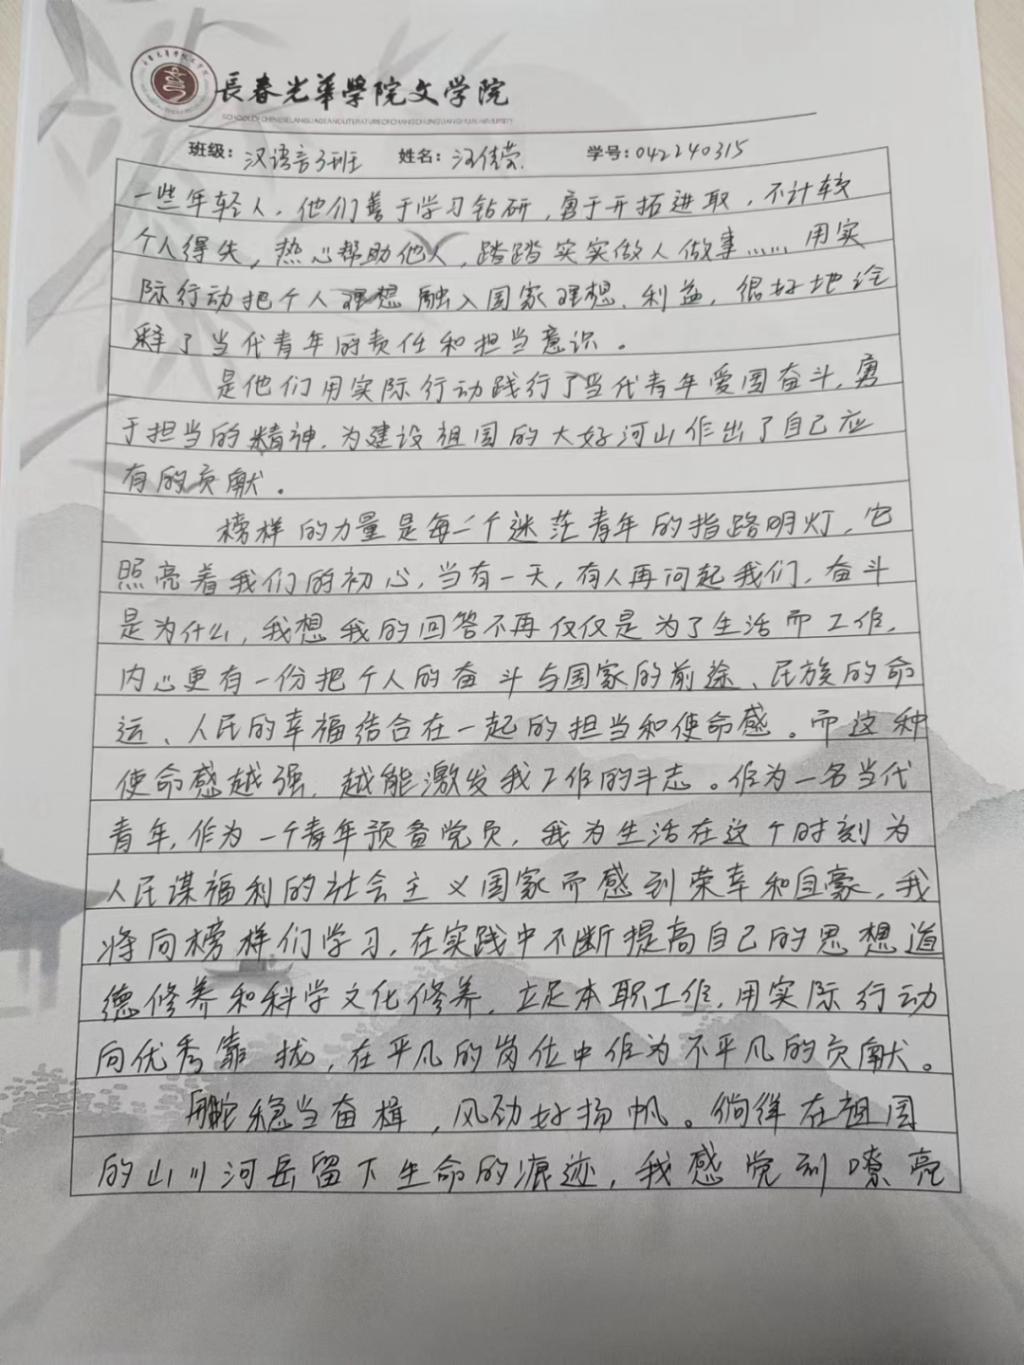 長春光華學院文学院
SCHOOL OF CHINESE LANGUAGE AND LITERATURE OF CHANGCHUN GUANGHUA UNIVERSITY
班级：汉语言3班 姓名：汪佳荣 学号：042240315
一些年轻人，他们善于学习钻研，勇于开拓进取，不计较
个人得失，热心帮助他人，踏踏实实做人做事……用实
际行动把个人理想融入国家理想、利益，很好地诠
释了当代青年的责任和担当意识。
是他们用实际行动践行了当代青年爱国奋斗，勇
于担当的精神，为建设祖国的大好河山作出了自己应
有的贡献。
榜样的力量是每一个迷茫青年的指路明灯，它
照亮着我们的初心，当有一天，有人再问起我们，奋斗
是为什么，我想我的回答不再仅仅是为了生活而工作，
内心更有一份把个人的奋斗与国家的前途、民族的命
运、人民的幸福结合在一起的担当和使命感。而这种
使命感越强，越能激发我工作的斗志。作为一名当代
青年，作为一个青年预备党员，我为生活在这个时刻为
人民谋福利的社会主义国家而感到荣幸和自豪，我
将向榜样们学习，在实践中不断提高自己的思想道
德修养和科学文化修养，立足本职工作，用实际行动
向优秀靠拢，在平凡的岗位中作为不平凡的贡献。
舵稳当奋楫，风劲好扬帆。徜徉在祖国
的山川河岳留下生命的痕迹，我感觉到嘹亮